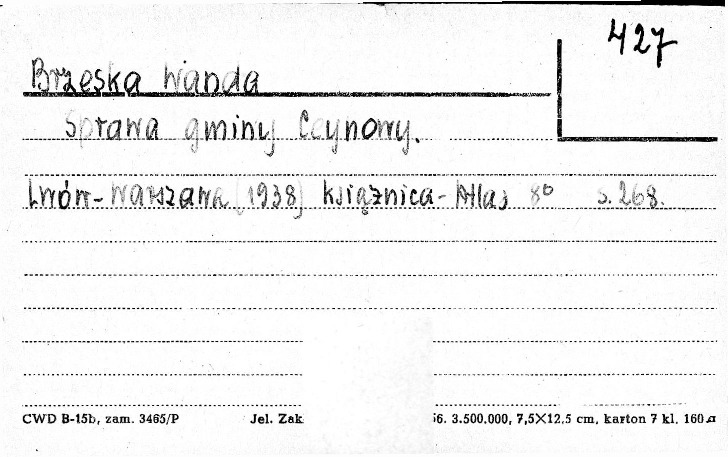 427
Brzeska Wanda
Sprawa gminy Ceynowy.
Lwów-Warszawa [1938] Książnica-Atlas 8° s. 268.
CWD B-15b, zam. 3465/P Jel. Zak 56. 3.500.000, 7,5×12,5 cm, karton 7 kl. 160